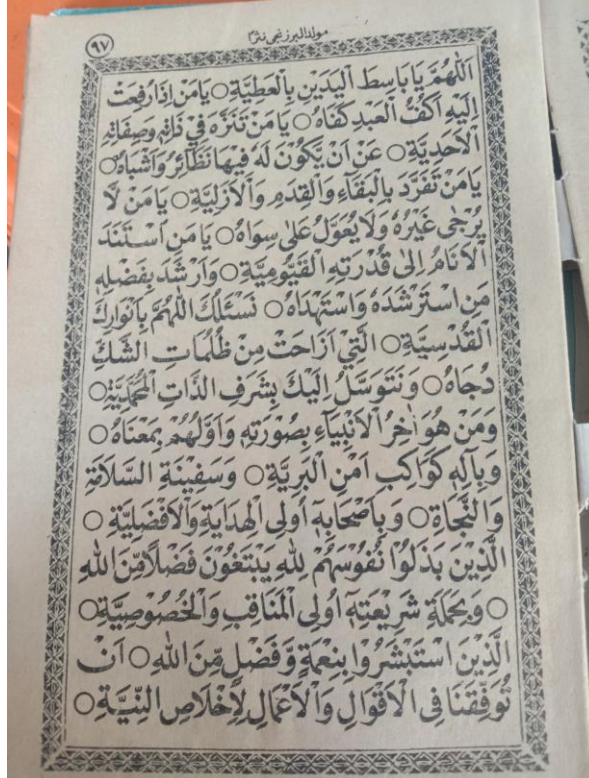 ٩٧
مولد البرزنجى نثرًا
اَللّٰهُمَّ يَا بَاسِطَ الْيَدَيْنِ بِالْعَطِيَّةِ ○ يَا مَنْ اِذَا رُفِعَتْ
اِلَيْهِ اَكُفُّ الْعَبْدِ كَفَاهُ ○ يَا مَنْ تَنَزَّهَ فِيْ ذَاتِهٖ وَصِفَاتِهِ
الْاَحَدِيَّةِ ○ عَنْ اَنْ يَّكُوْنَ لَهٗ فِيْهَا نَظَائِرُ وَاَشْبَاهٌ ○
يَا مَنْ تَفَرَّدَ بِالْبَقَاءِ وَالْقِدَمِ وَالْاَزَلِيَّةِ ○ يَا مَنْ لَّا
يُرْجٰى غَيْرُهٗ وَلَا يُعَوَّلُ عَلٰى سِوَاهُ ○ يَا مَنِ اسْتَنَدَ
الْاَنَامُ اِلٰى قُدْرَتِهِ الْقَيُّوْمِيَّةِ ○ وَاَرْشَدَ بِفَضْلِهٖ
مَنِ اسْتَرْشَدَهٗ وَاسْتَهْدَاهُ ○ نَسْئَلُكَ اللّٰهُمَّ بِاَنْوَارِكَ
الْقُدْسِيَّةِ ○ الَّتِيْ اَزَاحَتْ مِنْ ظُلُمَاتِ الشَّكِّ
دُجَاهُ ○ وَنَتَوَسَّلُ اِلَيْكَ بِشَرَفِ الذَّاتِ الْمُحَمَّدِيَّةِ ○
وَمَنْ هُوَ اٰخِرُ الْاَنْبِيَآءِ بِصُوْرَتِهٖ وَاَوَّلُهُمْ بِمَعْنَاهُ ○
وَبِاٰلِهٖ كَوَاكِبِ اَمْنِ الْبَرِيَّةِ ○ وَسَفِيْنَةِ السَّلَامَةِ
وَالنَّجَاةِ ○ وَبِاَصْحَابِهٖٓ اُولِى الْهِدَايَةِ وَالْاَفْضَلِيَّةِ ○
الَّذِيْنَ بَذَلُوْا نُفُوْسَهُمْ لِلّٰهِ يَبْتَغُوْنَ فَضْلًا مِّنَ اللّٰهِ
○ وَبِحَمَلَةِ شَرِيْعَتِهٖٓ اُولِى الْمَنَاقِبِ وَالْخُصُوْصِيَّةِ ○
الَّذِيْنَ اسْتَبْشَرُوْا بِنِعْمَةٍ وَّفَضْلٍ مِّنَ اللّٰهِ ○ اَنْ
تُوَفِّقَنَا فِى الْاَقْوَالِ وَالْاَعْمَالِ لِاِخْلَاصِ النِّيَّةِ ○